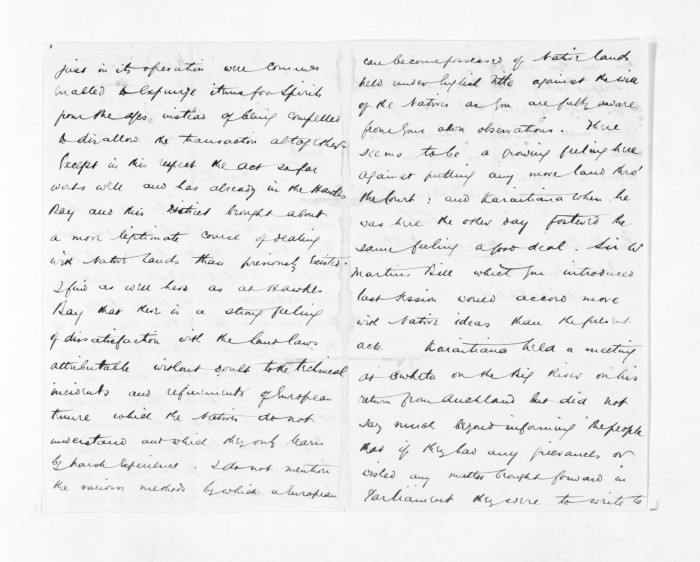 just in its operation were Comrs
enabled to expunge items for Spirits
from the a/cs instead of being compelled
to disallow the transaction altogether.
Except in this respect the act so far
works well and has already in the Hawkes
Bay and this District brought about
a more legitimate course of dealing
with Native lands than previously existed.
I find as well here as at Hawkes
Bay that there is a strong feeling
of dissatisfaction with the land laws
attributable without doubt to the technical
incidents and refinements of European
tenure which the Natives do not
understand and which they only learn
by harsh experience. I do not mention
the various methods by which a European
can become possessed of Native lands
held under English title against the will
of the Natives as you are fully aware
from your own observations. There
seems to be a growing feeling here
against putting any more land thro'
the Court: and Karaitiana when he
was here the other day fostered the
same feeling a good deal. Sir W
Martins Bill which you introduced
last session would accord more
with Native ideas than the present
act. Karaitiana held a meeting
at on the Big River on his
return from Auckland but did not
say much beyond informing the people
that if they had any grievances or
wished any matter brought forward in
Parliament they were to write to